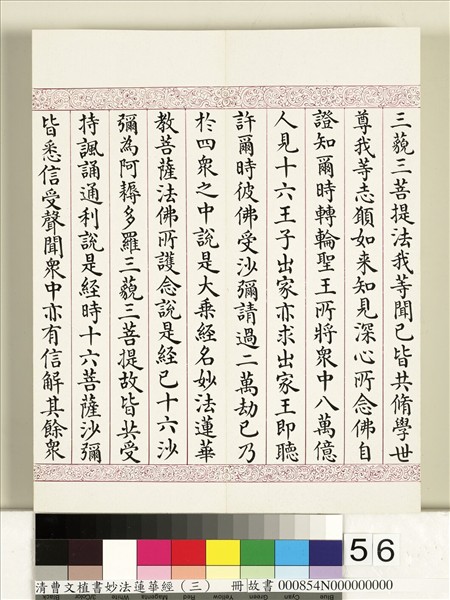 三藐三菩提法我等聞已皆共脩學世
尊我等志願如来知見深心所念佛自
證知爾時轉輪聖王所將衆中八萬億
人見十六王子出家亦求出家王即聽
許爾時彼佛受沙彌請過二萬劫已乃
於四衆之中說是大乗經名妙法蓮華
教菩薩法佛所護念說是經已十六沙
彌為阿耨多羅三藐三菩提故皆共受
持諷誦通利說是経時十六菩薩沙彌
皆悉信受聲聞衆中亦有信解其餘衆
56
清曹文植書妙法蓮華經（三） 冊 故書 000854N000000000